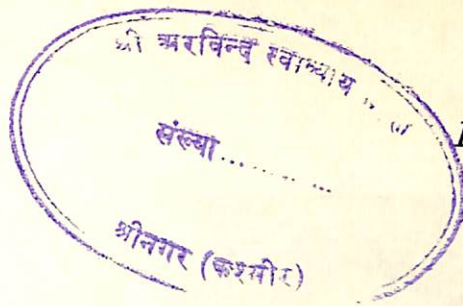 श्री अरविन्द स्वाध्याय
संख्या............
श्रीनगर (कश्मीर)